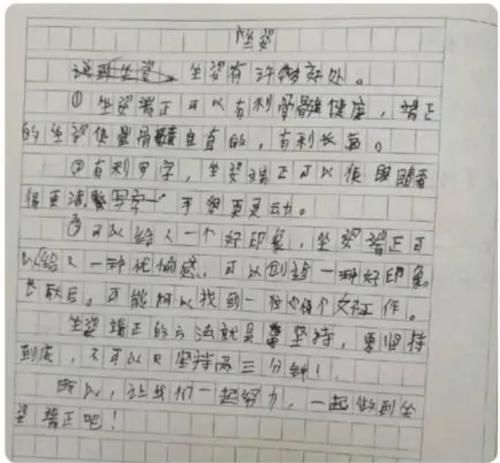 坐姿
坐姿有许多好处。
①坐姿端正可以有利骨骼健康，端正
的坐姿使骨骼是直的，有利长高。
②有利写字，坐姿端正可以使眼睛看
得更清楚，手更灵动。
③可以给人一个好印象，坐姿端正可
以给人一种优偷感，可以创造一种好印象。
长大后。可能可以找到一份好工作。
坐姿端正的方法就是坚持，要坚持
到底，不可以只坚持两三分钟！
所以，让我们一起努力，一起做到坐
姿端正吧！